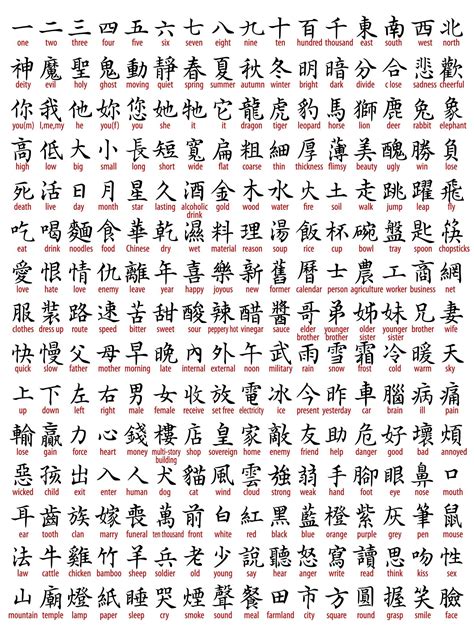 一 二 三 四 五 六 七 八 九 十 百 千 東 南 西 北
one two three four five six seven eight nine ten hundred thousand east south west north
神 魔 聖 鬼 動 靜 春 夏 秋 冬 明 暗 分 合 悲 歡
deity evil holy ghost moving quiet spring summer autumn winter bright dark divide close sadness cheerful
你 我 他 妳 您 她 牠 它 龍 虎 豹 馬 獅 鹿 兔 象
you(m) I,me,my he you(f) you she it it dragon tiger leopard horse lion deer rabbit elephant
高 低 大 小 長 短 寬 扁 粗 細 厚 薄 美 醜 勝 負
high low big small long short wide flat coarse thin thickness flimsy beauty ugly win lose
死 活 日 月 星 久 酒 金 木 水 火 土 走 跳 躍 飛
death live day month star lasting alcoholic drink gold wood water fire soil walk jump leap fly
吃 喝 麵 食 華 乾 濕 料 理 湯 飯 杯 碗 盤 匙 筷
eat drink noodles food Chinese dry wet material reason soup rice cup bowl tray spoon chopsticks
愛 恨 情 仇 離 年 喜 樂 新 舊 曆 士 農 工 商 網
love hate love enemy leave year happy joyous new former calendar person agriculture worker business net
服 裝 路 速 苦 甜 酸 辣 醋 醬 哥 弟 姊 妹 兄 妻
clothes dress up route speed bitter sweet sour peppery hot vinegar sauce elder brother younger brother older sister younger sister brother wife
快 慢 父 母 早 晚 內 外 午 武 雨 雪 霜 冷 暖 天
quick slow father mother morning late internal external noon military rain snow frost cold warm sky
上 下 左 右 男 女 收 放 電 冰 今 昨 車 腦 病 痛
up down left right male female receive set free electricity ice present yesterday car brain ill pain
輸 贏 力 心 錢 樓 店 皇 家 敵 友 助 危 好 壞 煩
lose gain force heart money multi-story building shop sovereign home enemy friend help danger good bad annoyed
惡 孩 出 入 人 犬 貓 風 雲 強 弱 手 腳 眼 鼻 口
wicked child exit enter human dog cat wind cloud strong weak hand foot eye nose mouth
耳 齒 族 嫁 喪 萬 前 白 紅 黑 藍 橙 紫 灰 筆 鼠
ear tooth clan marry funeral ten thousand front white red black blue orange purple grey pen mouse
法 牛 雞 竹 羊 兵 老 少 說 聽 怒 寫 讀 思 吻 性
law cattle chicken bamboo sheep soldier old young say hear angry write read think kiss sex
山 廟 燈 紙 睡 哭 煙 聲 餐 田 市 方 圓 握 笑 臉
mountain temple lamp paper sleep cry smoke sound meal farmland city square round grasp laugh face